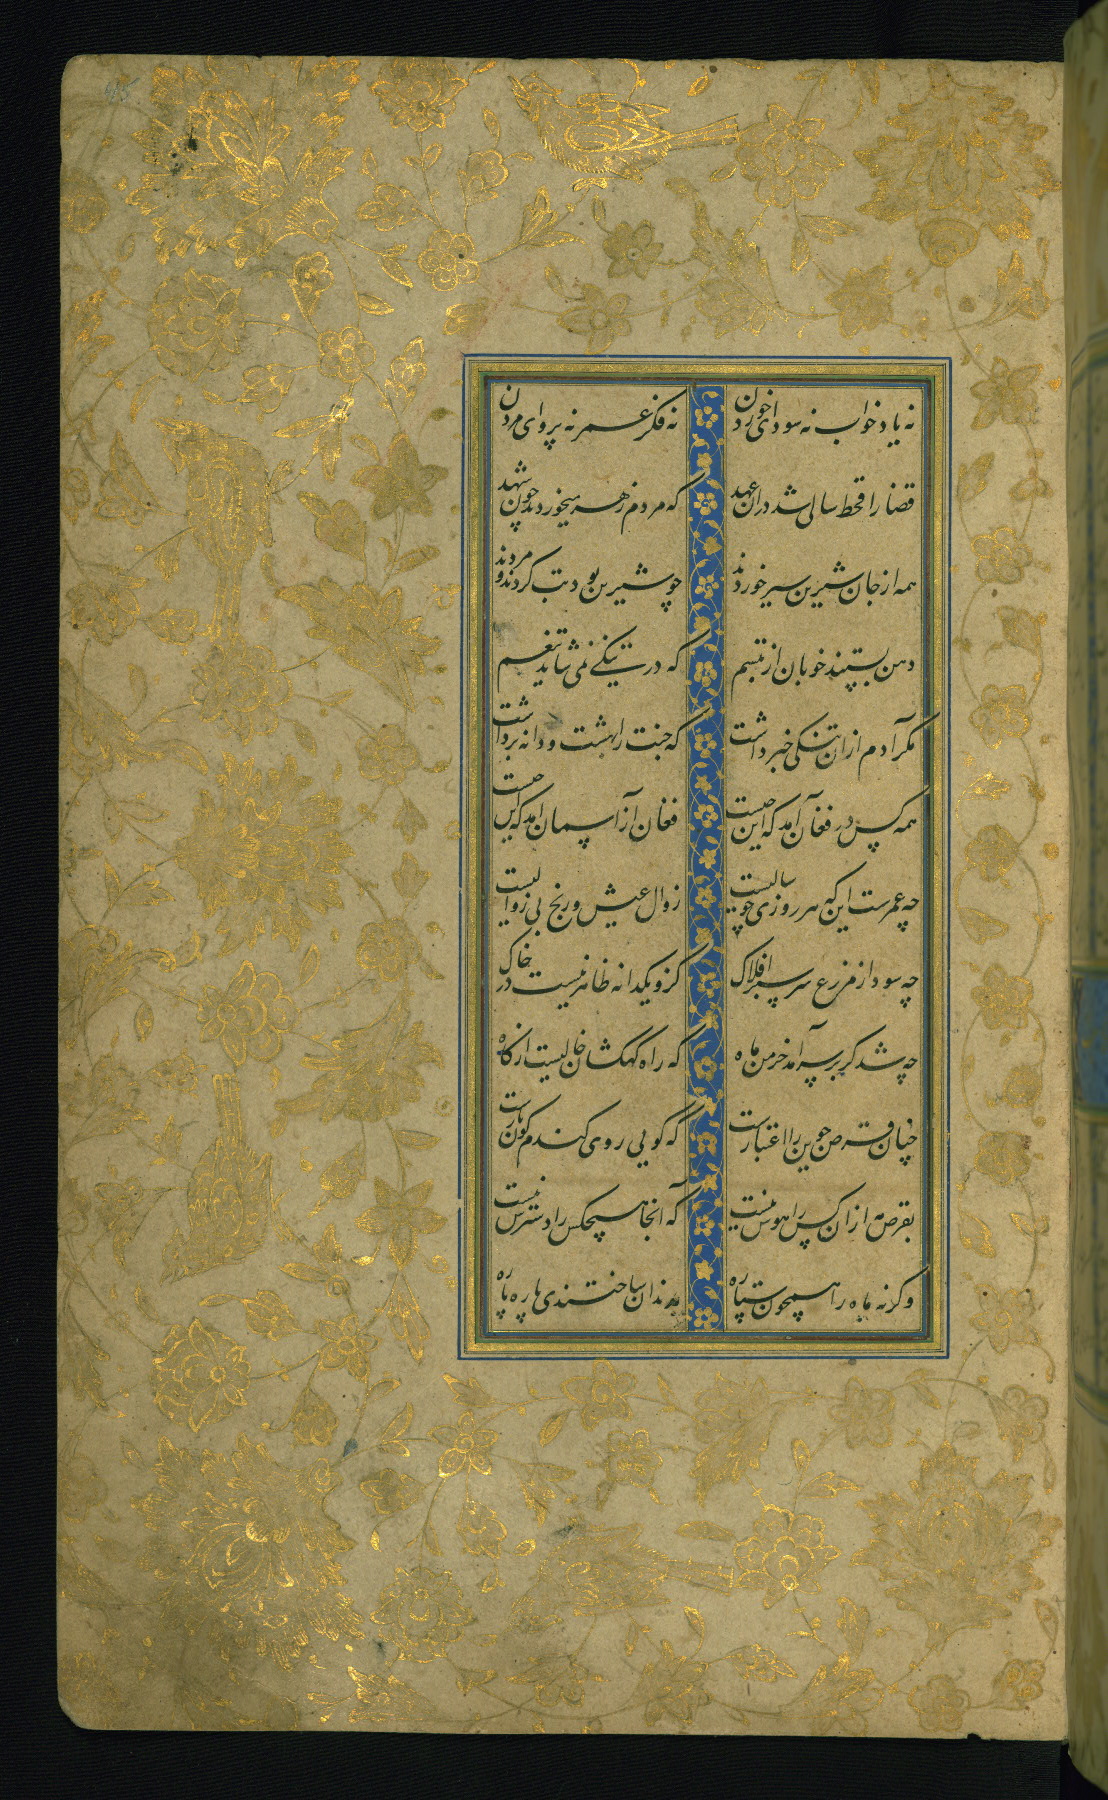 نه یاد خواب نه سودای خوردن نه فکر عمر نه پروای مردن
قضا را قحط سالی شد دران عهد که مردم زهر میخوردند چون شهد
همه از جان شیرین سیر خوردند چو شیرین بود تب کردند و مردند
دهن بستند خوبان از تبسم که در تنگی نمی شاید تنعم
مکر آدم ازان تنکی خبر داشت که جنت را بهشت و دانه برداشت
همه کس در فغان آمد که این چیست فغان از آسمان آمد که این چیست
چه عمرست این که هر روزی چو سالیست زوال عیش و رنج بی زوالیست
چه سود از مزرع سرسبز افلاک کزو یکدانه ظاهر نیست در خاک
چه شد کر بر سر آمد خرمن ماه که راه کهکشان خالیست از کاه
چنان قرص جوین را اعتبارست که گویی روی کندم کون یارست
بقرص مه ازان کس را هوس نیست که آنجا هیچکس را دسترس نیست
وکرنه ماه را همچون ستاره بدندان ساختندی پاره پاره